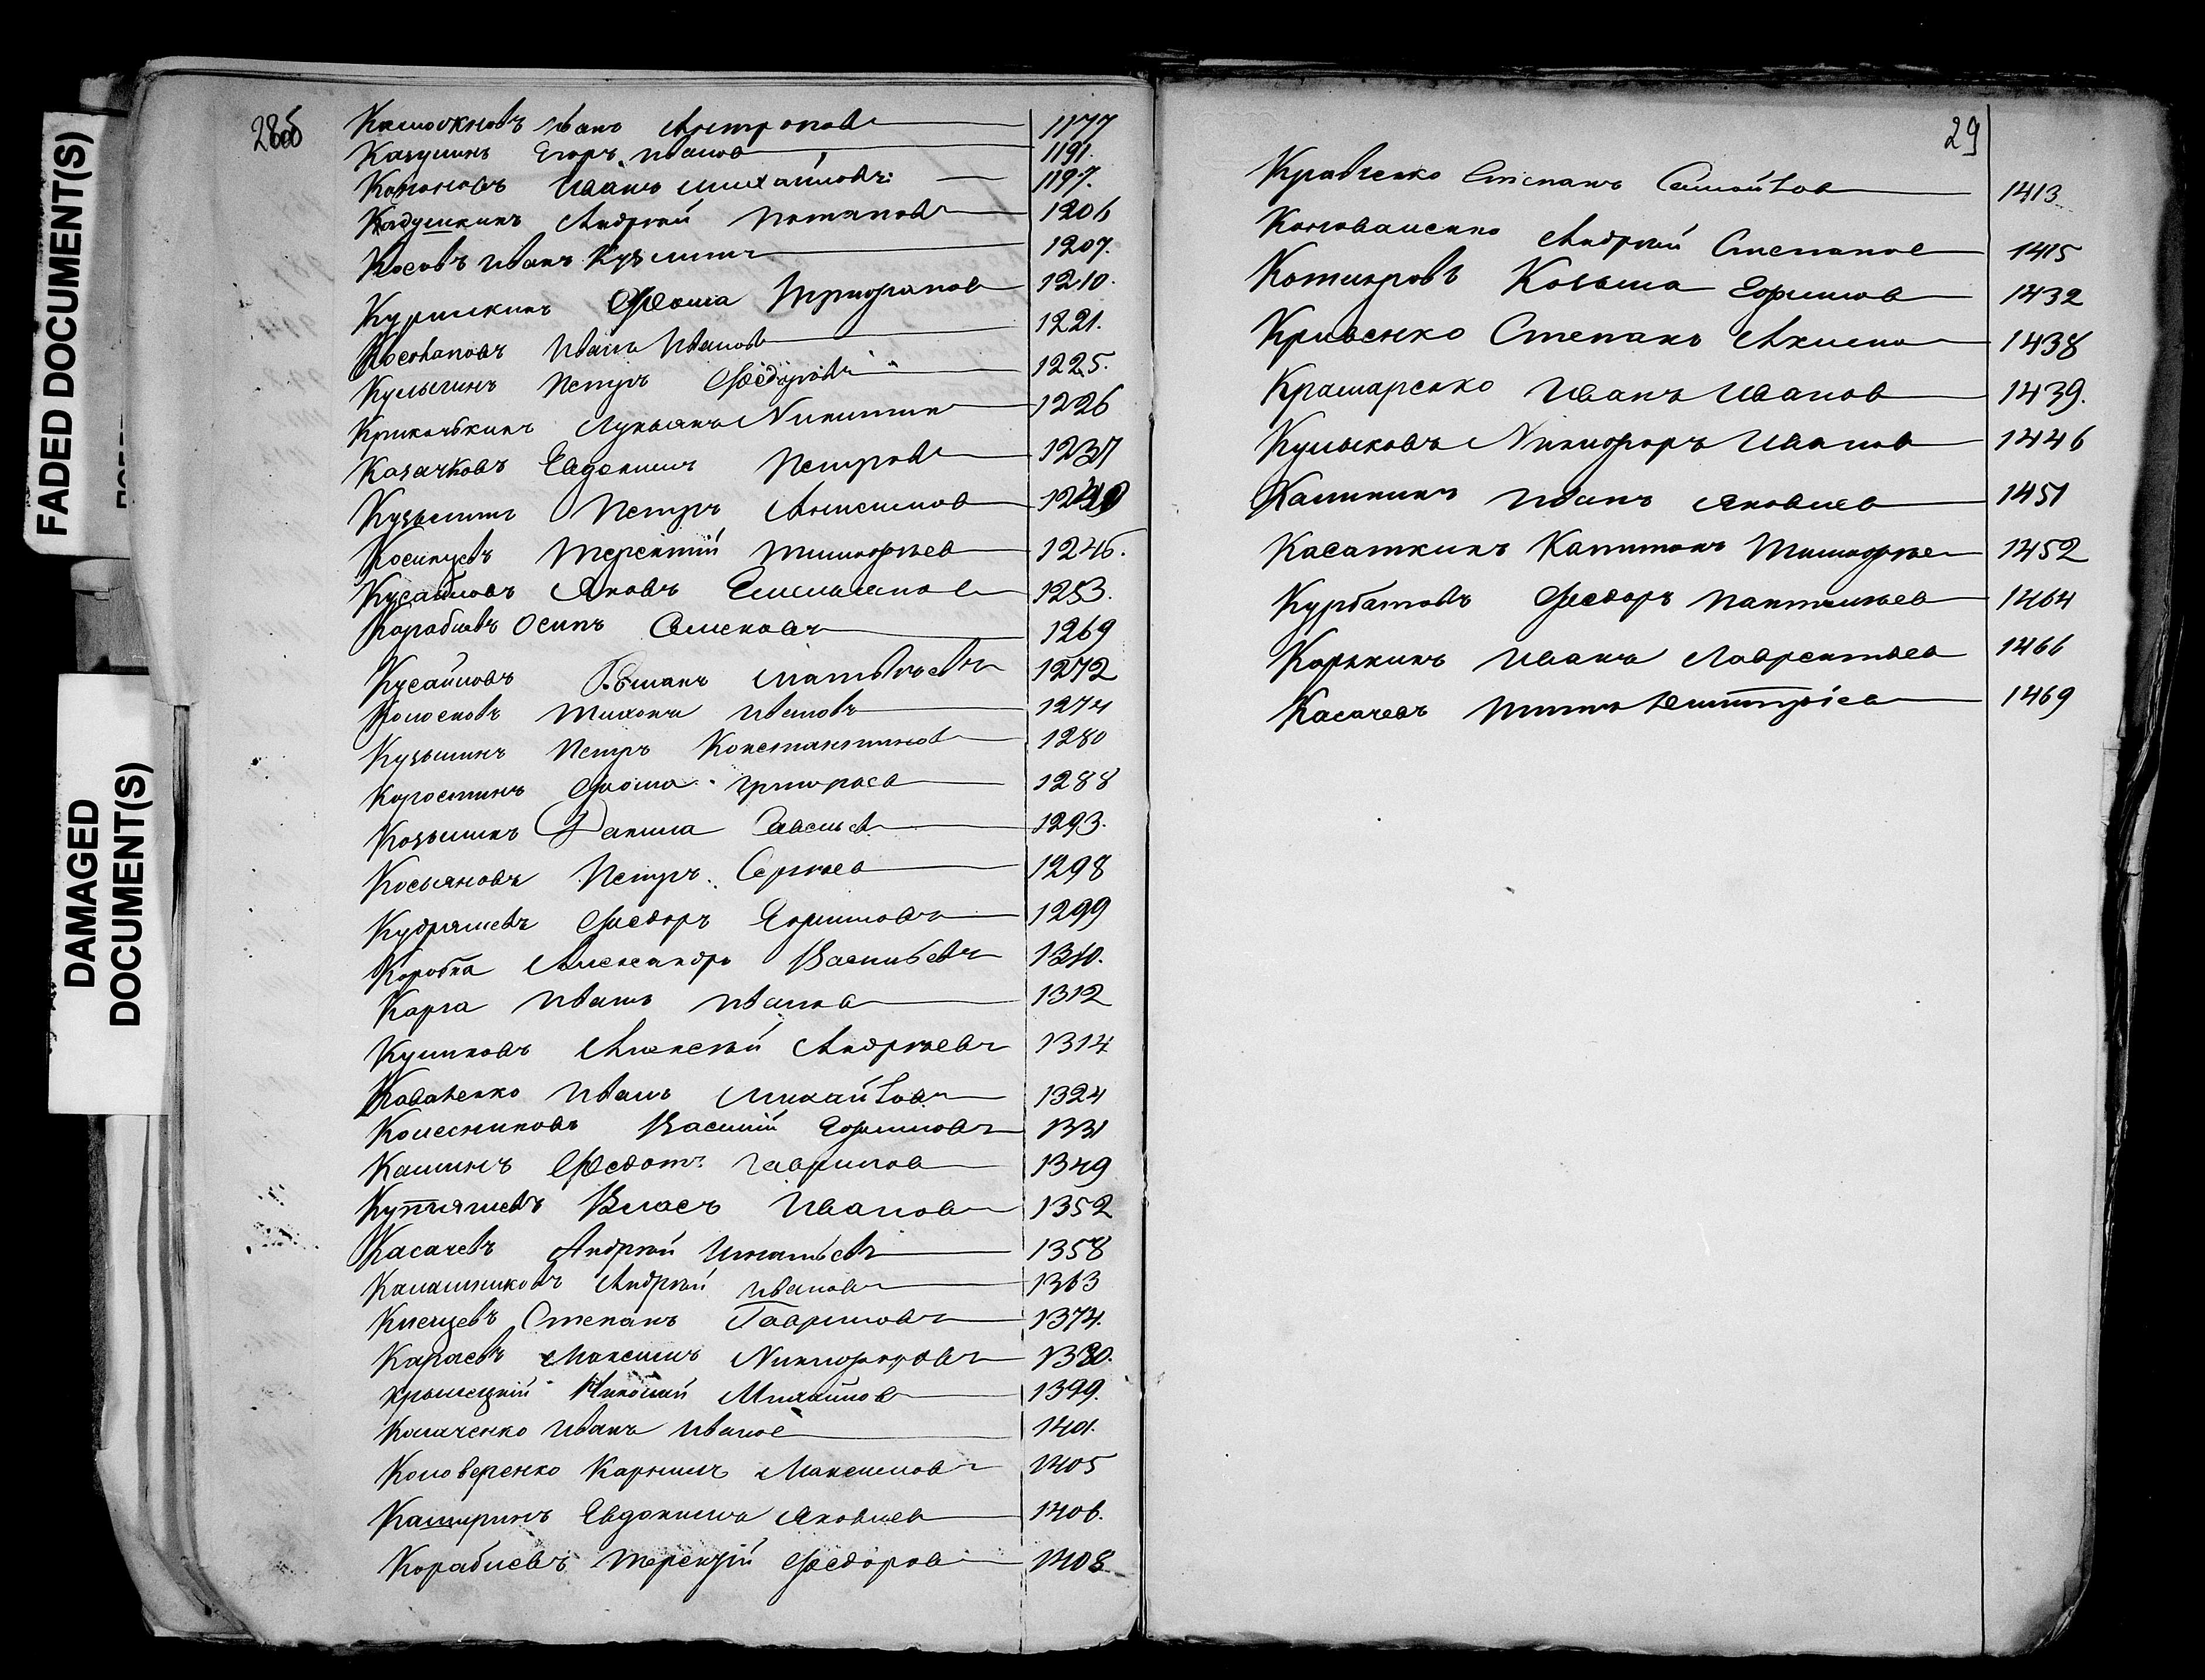 FADED DOCUMENT(S)
DAMAGED
DOCUMENT(S)
28об
Иванъ Антропов 1177
Казулинъ Егоръ Иванов 1191.
Кононовъ Иванъ Михайловъ 1197.
Кадушкинъ Андрей Потапов 1206
Косовъ Иванъ Кузьминъ 1207.
Курилкинъ Фома Трифонов 1210.
Иванъ Иванов 1221.
Кулыгинъ Петръ Федоров 1225.
Лукьянъ Никитин 1226
Казачковъ Евдокимъ Петров 1237
Кузьминъ Петръ Анисимов
Косинцевъ Терентий Тимофѣев 1246.
Кусайловъ Яковъ Емельянов 1253.
Караблевъ Осипъ Семеновъ 1269
Кусайловъ Матвѣевъ 1272
Колосковъ Тихонъ Ивановъ 1274
Кузьминъ Петръ Константинов 1280
Коростинъ Фома Григорьев 1288
Козьминъ Данила Савельев 1293.
Косьяновъ Петръ Сергѣев 1298
Кудряшевъ Федоръ Ефимовъ 1299
Коробка Александръ Васильевъ 1310.
Карга Иванъ Иванов 1312
Куликовъ Алексѣй Андрѣевъ 1314
Коваленко Иванъ Михайлов 1324
Колесниковъ Василий Ефимовъ 1331
Калинъ Федотъ Гаврилов 1349
Власъ Иванов 1352
Касачевъ Андрѣй Игнатьевъ 1358
Калашниковъ Андрѣй Иванов 1363
Клевцевъ Степанъ Гавриловъ 1374.
Караевъ Максимъ Никифоровъ 1380.
Крылецкий Николай Михайлов 1399.
Колаченко Иванъ Иванов 1401.
Коловеренко Карнилъ Максимов 1405
Каширинъ Евдокимъ Яковлев 1406.
Кораблевъ Терентий Федоров 1408
29
Кравченко Степанъ Самойлов 1413
Коноваленко Андрѣй Степанов 1415
Котляровъ Козьма Ефимов 1432
Кривенко Степанъ Акимов 1438
Крамаренко Иванъ Иванов 1439.
Кулыковъ Никифоръ Иванов 1446
Калининъ Иванъ Яковлев 1451
Касаткинъ Капитонъ Тимофѣе 1452
Курбатовъ Федоръ Пантелѣев 1464
Корнкинъ Иванъ Лаврентьев 1466
Касачевъ Титъ Дмитріев 1469